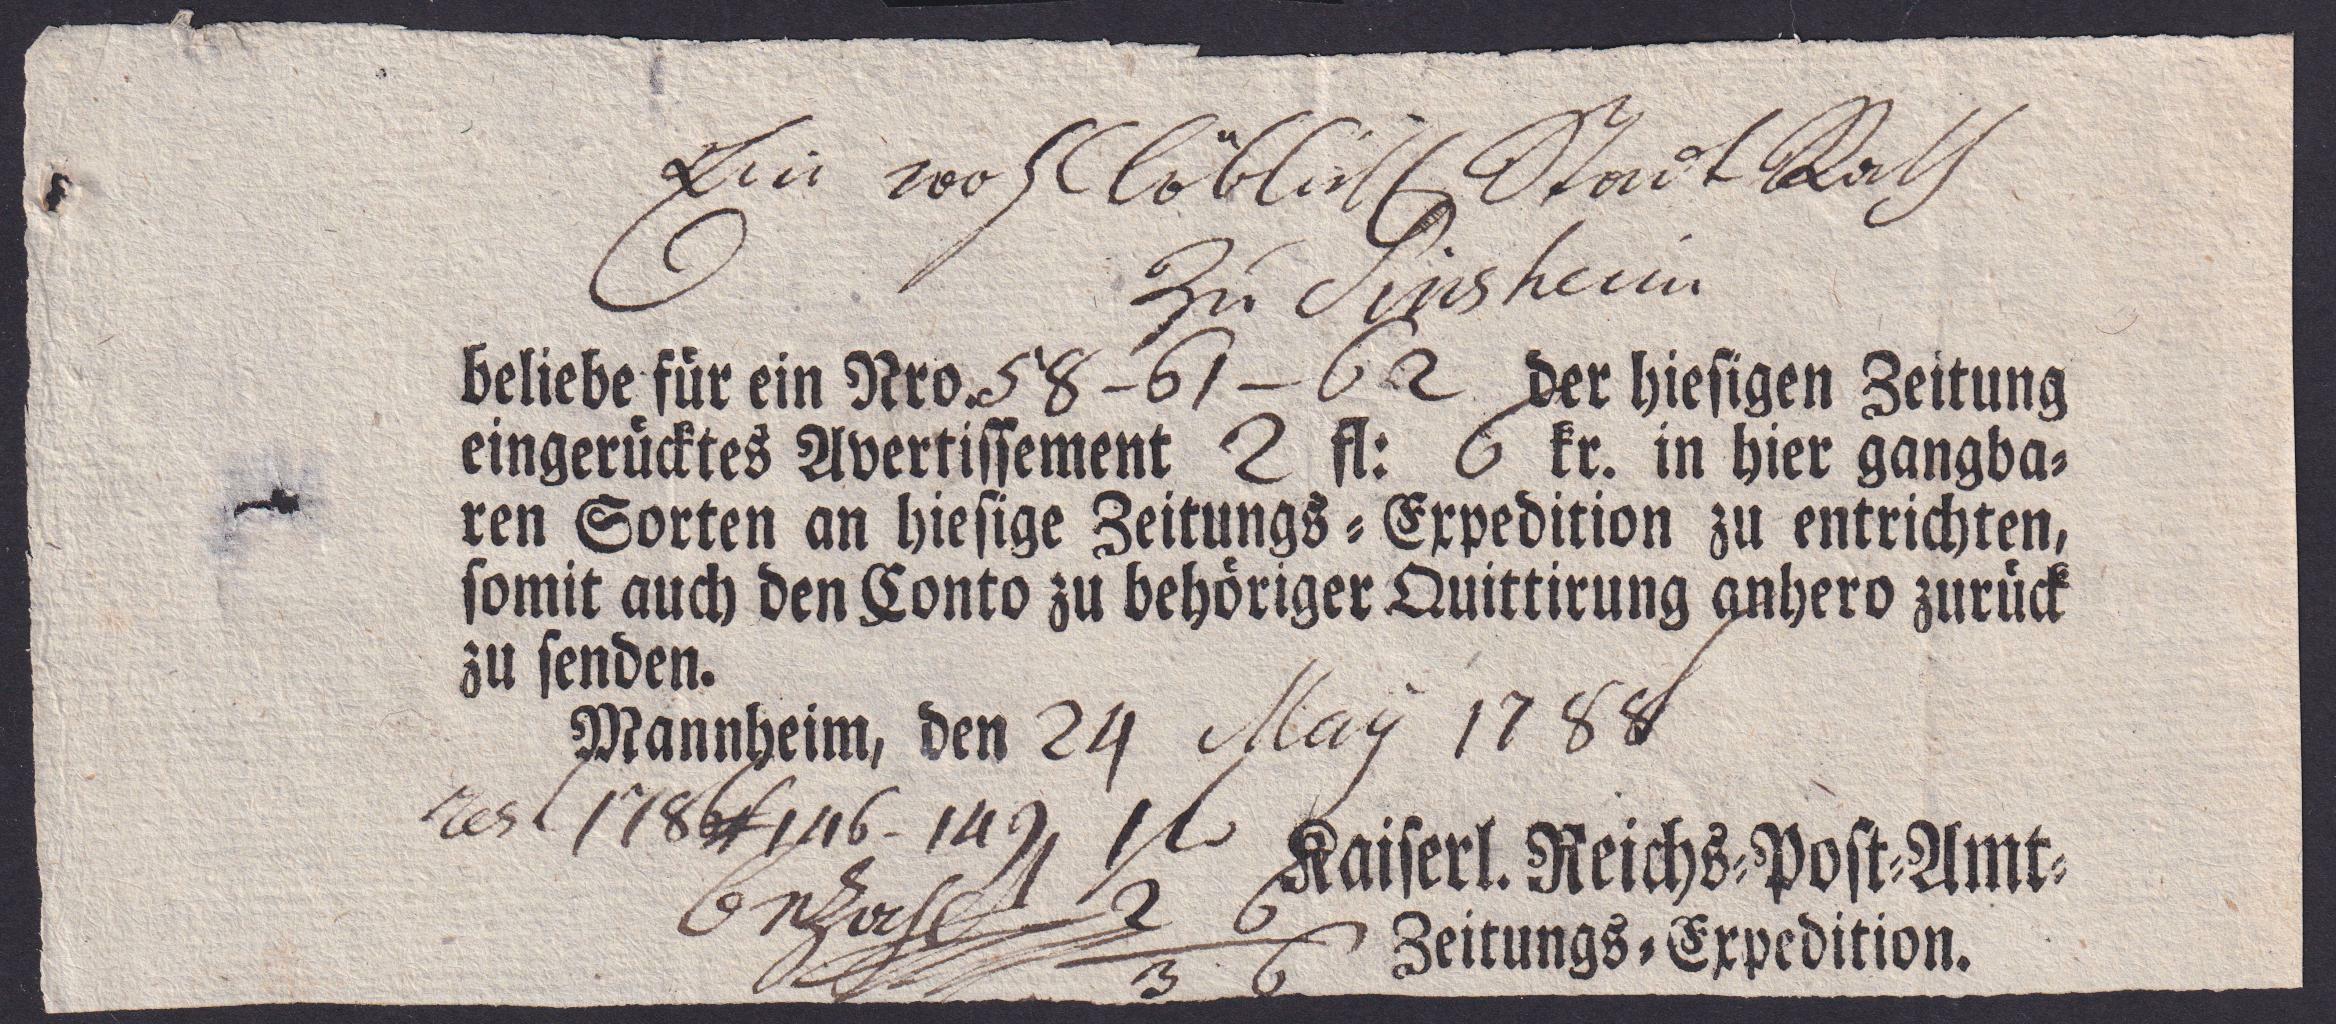 Ein wohllöblich Stadt Rath
zu Sinsheim
beliebe für ein Nro. 58 - 61 - 62 der hiesigen Zeitung
eingerücktes Avertissement 2 fl: 6 kr. in hier gangba-
ren Sorten an hiesige Zeitungs-Expedition zu entrichten,
somit auch den Conto zu behöriger Quittirung anhero zurück
zu senden.
Mannheim, den 24 May 1788
rest 1786 146 - 149 1
bezahlt 2 6
3 6
Kaiserl. Reichs-Post-Amt-
Zeitungs-Expedition.